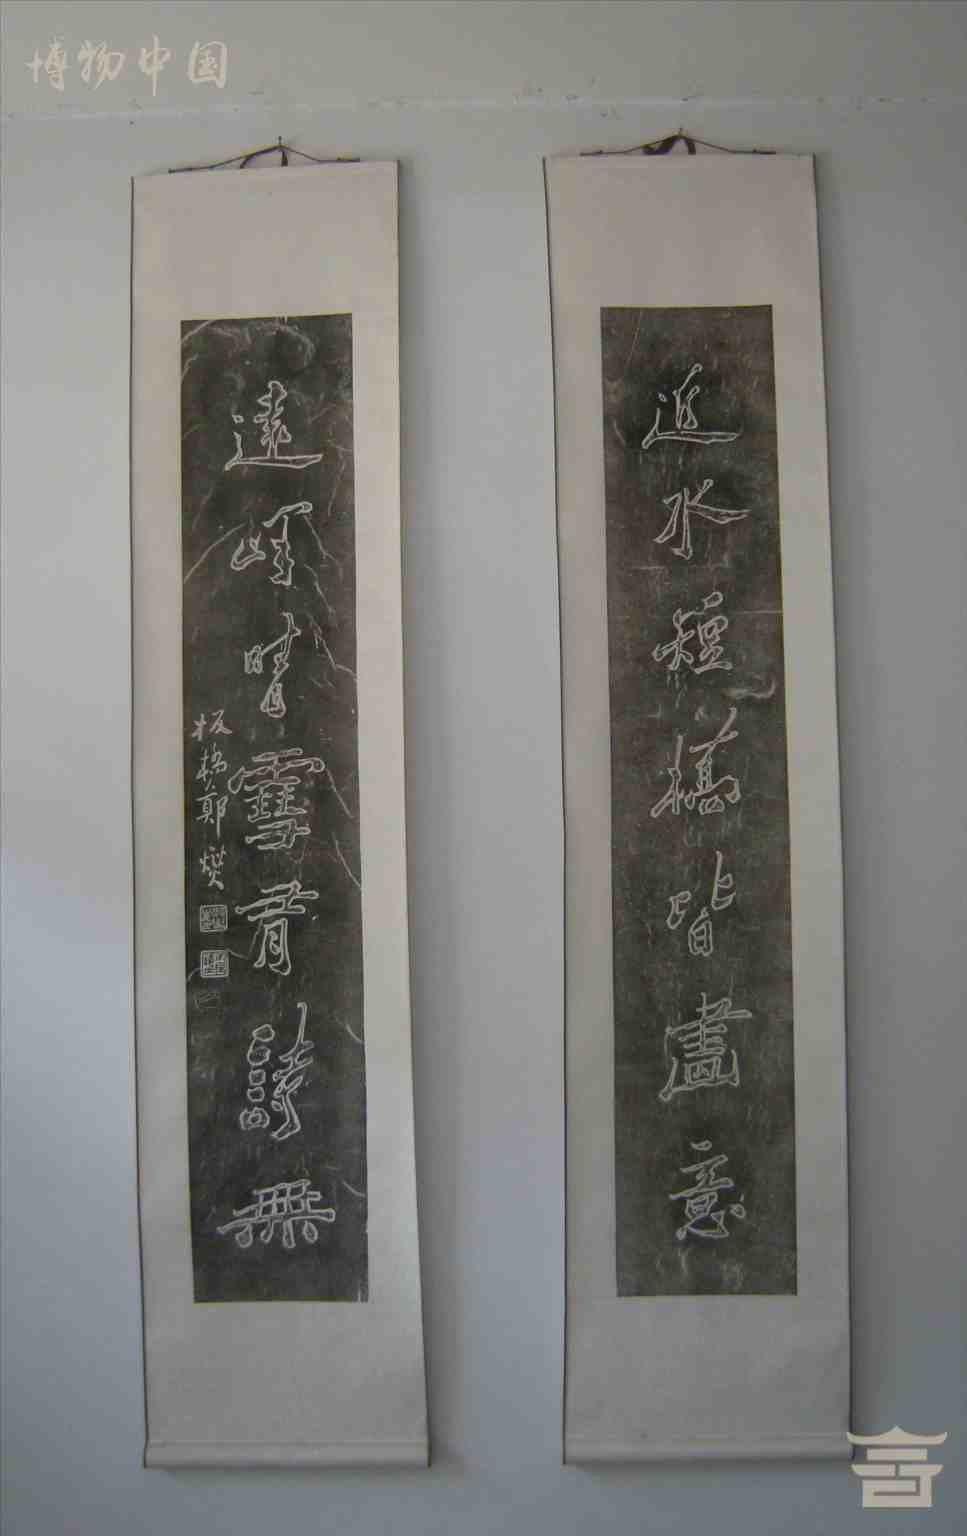 博物中国
近水短橋皆畫意
遠峰晴雪有詩無
板橋鄭燮